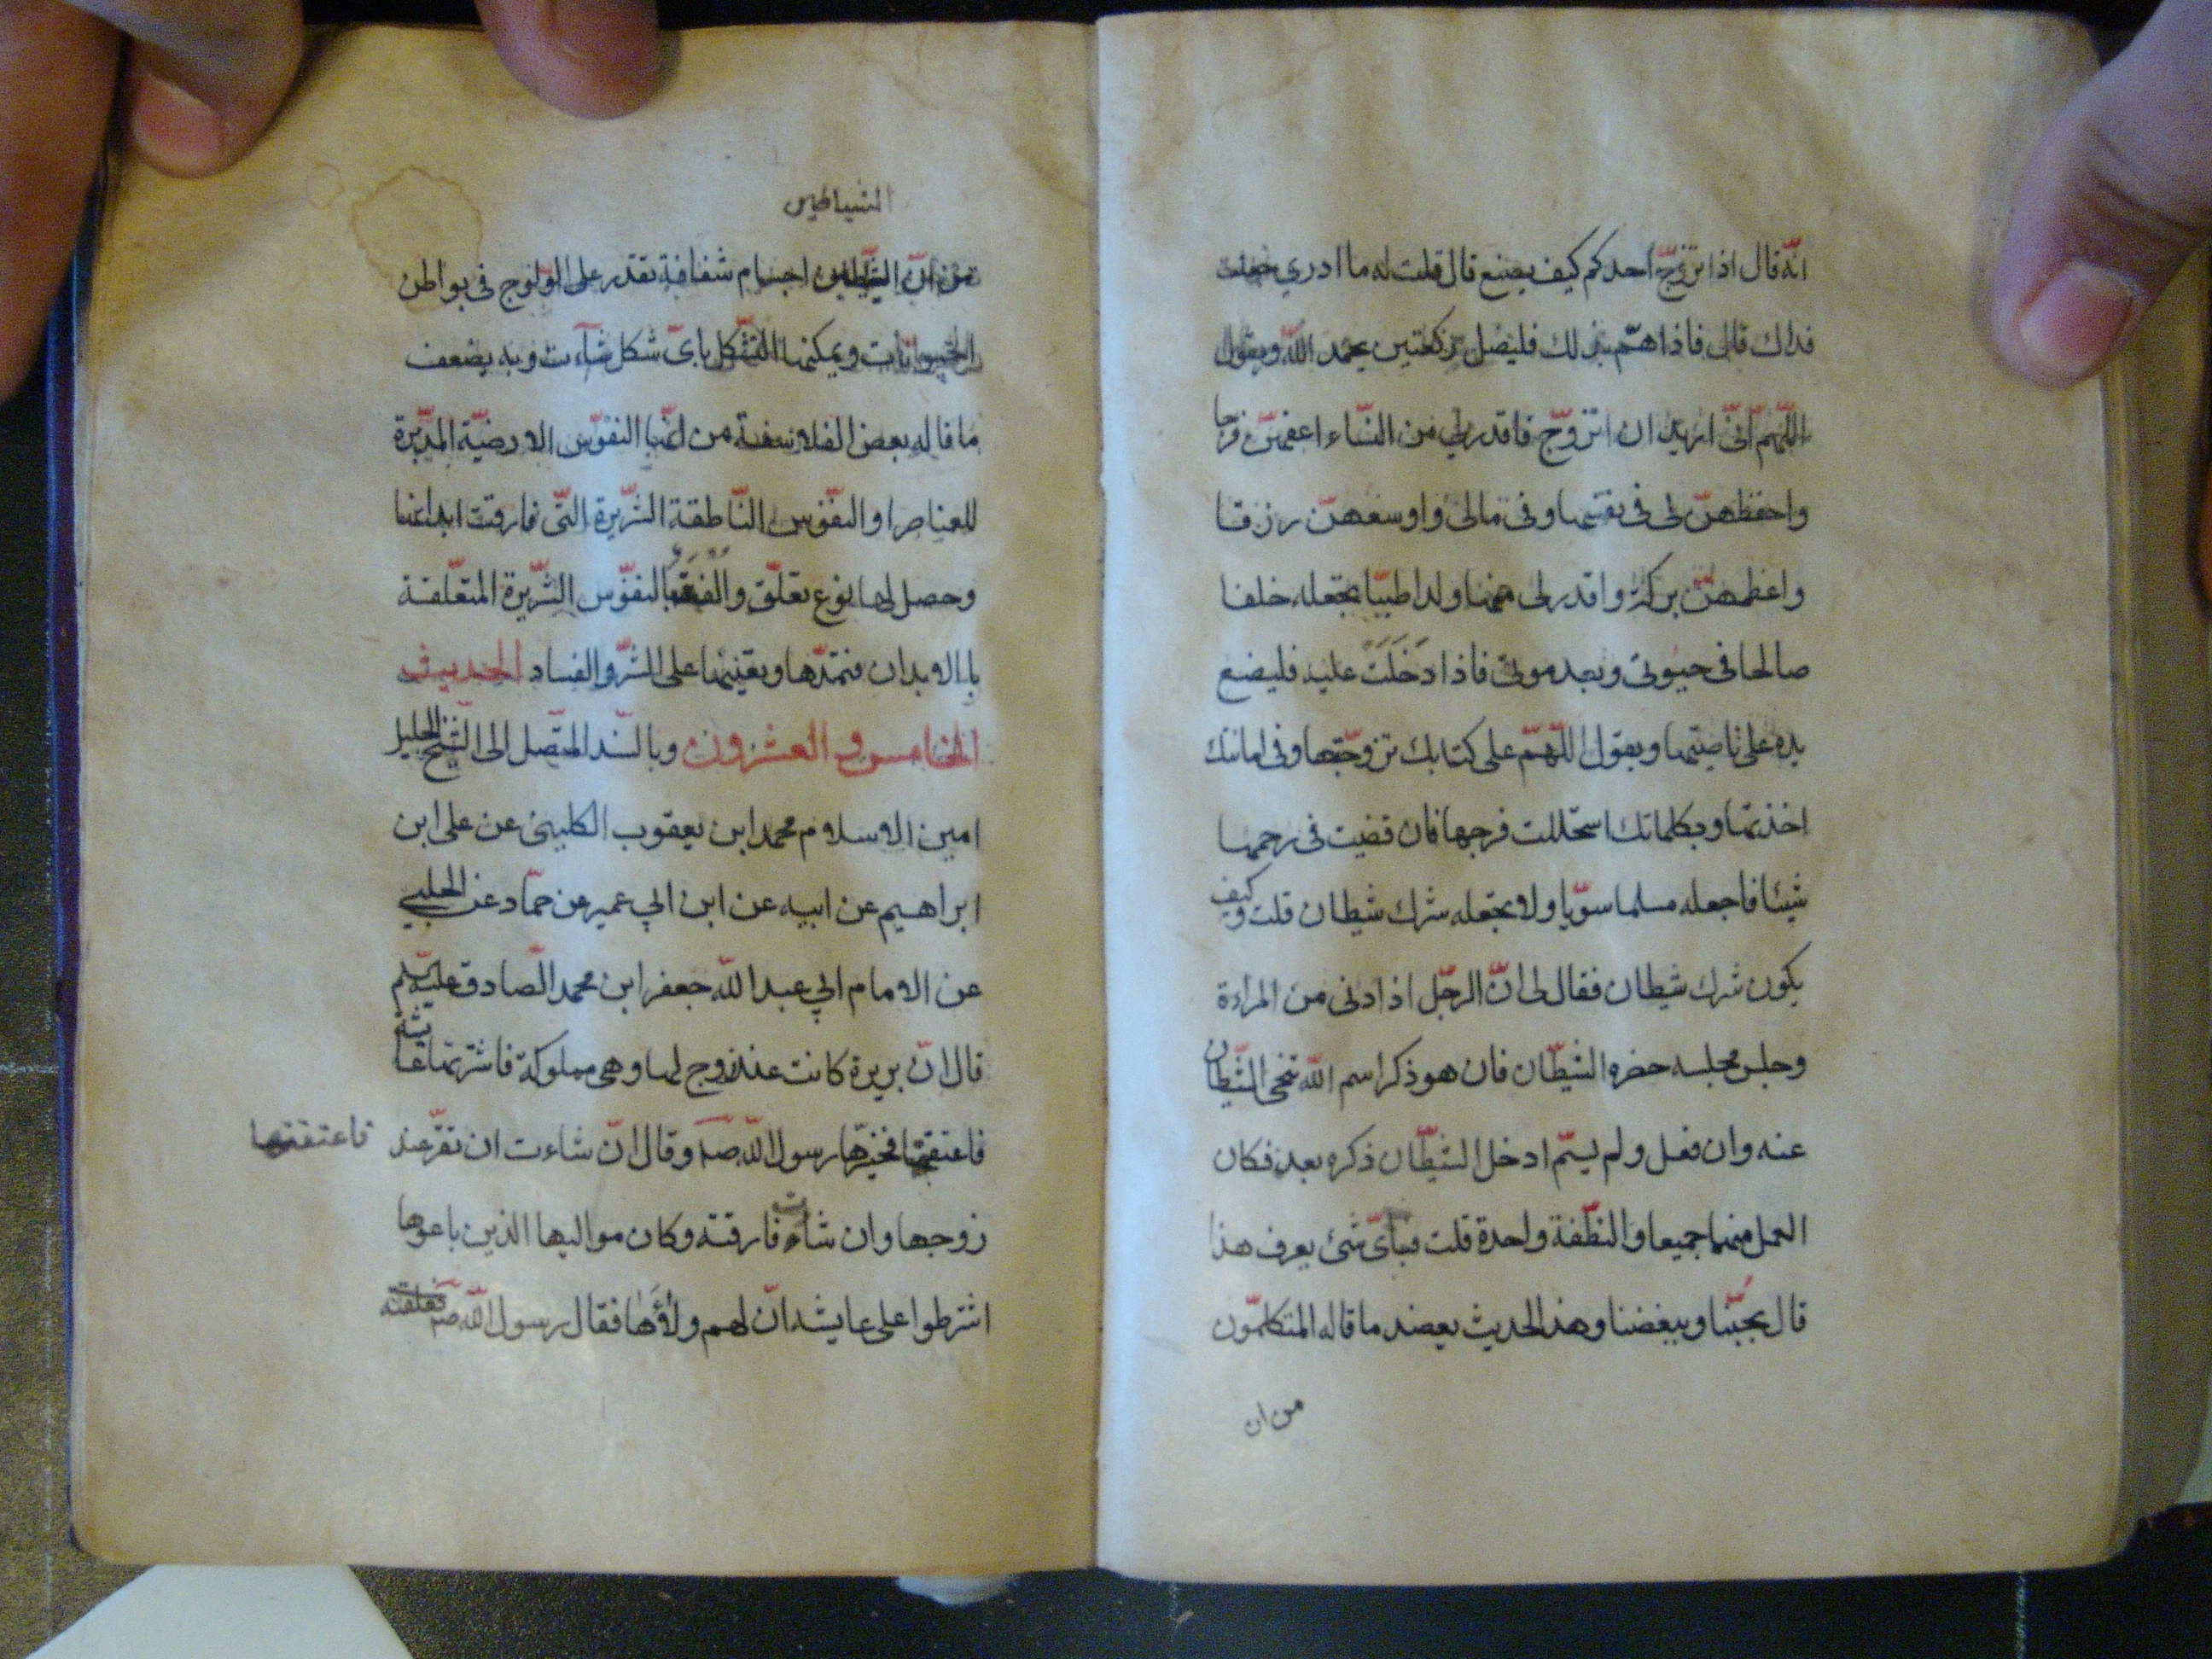 انّه قال اذا تزوّج احدكم كيف يصنع قال قلت له ما ادري جعلت
فداك قال فاذا همّ بذلك فليصل ركعتين يحمد الله ويقول
اللّهمّ انّى اريد ان اتزوّج فاقدر لى من النّساء اعفهنّ فرجا
واحفظهنّ لى فى نفسها وفى مالى واوسعهنّ رزقا
واعظمهنّ بركة واقدر لى منها ولدا طيّبا تجعله خلفا
صالحا فى حيوتى وبعد موتى فاذا دَخَلَتْ عليه فليضع
يده على ناصيتها ويقول اللّهمّ على كتابك تزوّجتها وفى امانتك
اخذتها وبكلماتك استحللت فرجها فان قضيت فى رحمها
شيئا فاجعله مسلما سوّيا ولا تجعله شرك شيطان قلت وكيف
يكون شرك شيطان فقال لى انّ الرّجل اذا دنى من المراءة
وجلس مجلسه حضره الشّيطان فان هو ذكر اسم الله تنحى الشّيطان
عنه وان فعل ولم يسّم ادخل الشّيطان ذكره بعد فكان
العمل منهما جميعا والنّطفة واحدة قلت فبأىّ شئ يعرف هذا
قال بحبّنا وببغضنا وهذ الحديث يعضد ما قاله المتكلّمون
من ان
الشياطين
من انّ اجسام شفافة تقدر على الولوج فى بواطن
الحيوانات ويمكنها التّشكل باىّ شكل شآءت وبه يضعف
ما قاله بعض الفلاسفة من انّها النفوس الارضيّة المدبّرة
للعناصر او النفّوس النّاطقة الشّريرة التّى فارقت ابدانها
وحصل لها نوع تعلّق بالنفوّس الشّريرة المتعّلقة
با الابدان فتمدّها وتعينها على الشّر والفساد الحديث
الخامس و العشرون وبالسّند المتّصل الى الشّيخ الجليل
امين الاسلام محمد ابن يعقوب الكلينى عن على ابن
ابراهيم عن ابيه عن ابن ابي عمير عن حمّاد عن الحلبي
عن الامام ابي عبد الله جعفر ابن محمد الصّادق عليه السّلم
قال انّ بريرة كانت عند زوج لها وهى مملوكة فاشترتها عايشه
فاعتقتها فخيّرها رسول الله صم وقال انّ شاءت ان تقرّ عند
فاعتقتها
زوجها وان شاءت فارقته وكان مواليها الذين باعوها
اشترطوا على عايشه انّ لهم ولاءها فقال رسول الله صم